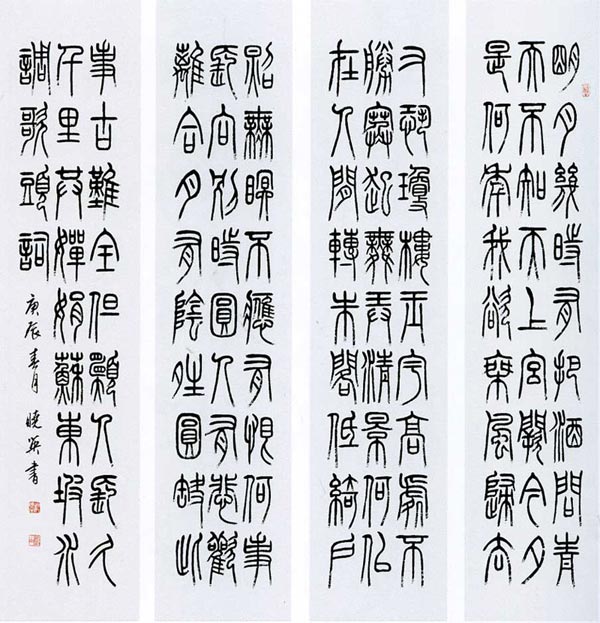 明月幾時有把酒問青
天不知天上宮闕今夕
是何年我欲乘風歸去
又恐瓊樓玉宇高處不
勝寒起舞弄清景何似
在人間轉朱閣低綺戶
照無眠不應有恨何事
長向別時圓人有悲歡
離合月有陰晴圓缺此
事古難全但願人長久
千里共嬋娟蘇東坡水
調歌頭詞
庚辰春月曉英書